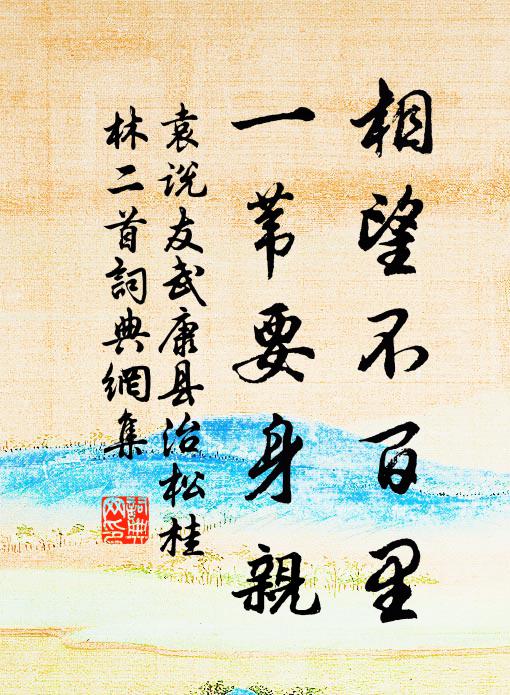 相望不百里
一苇要身親
袁说友武康县治松桂
林二首詞典網集